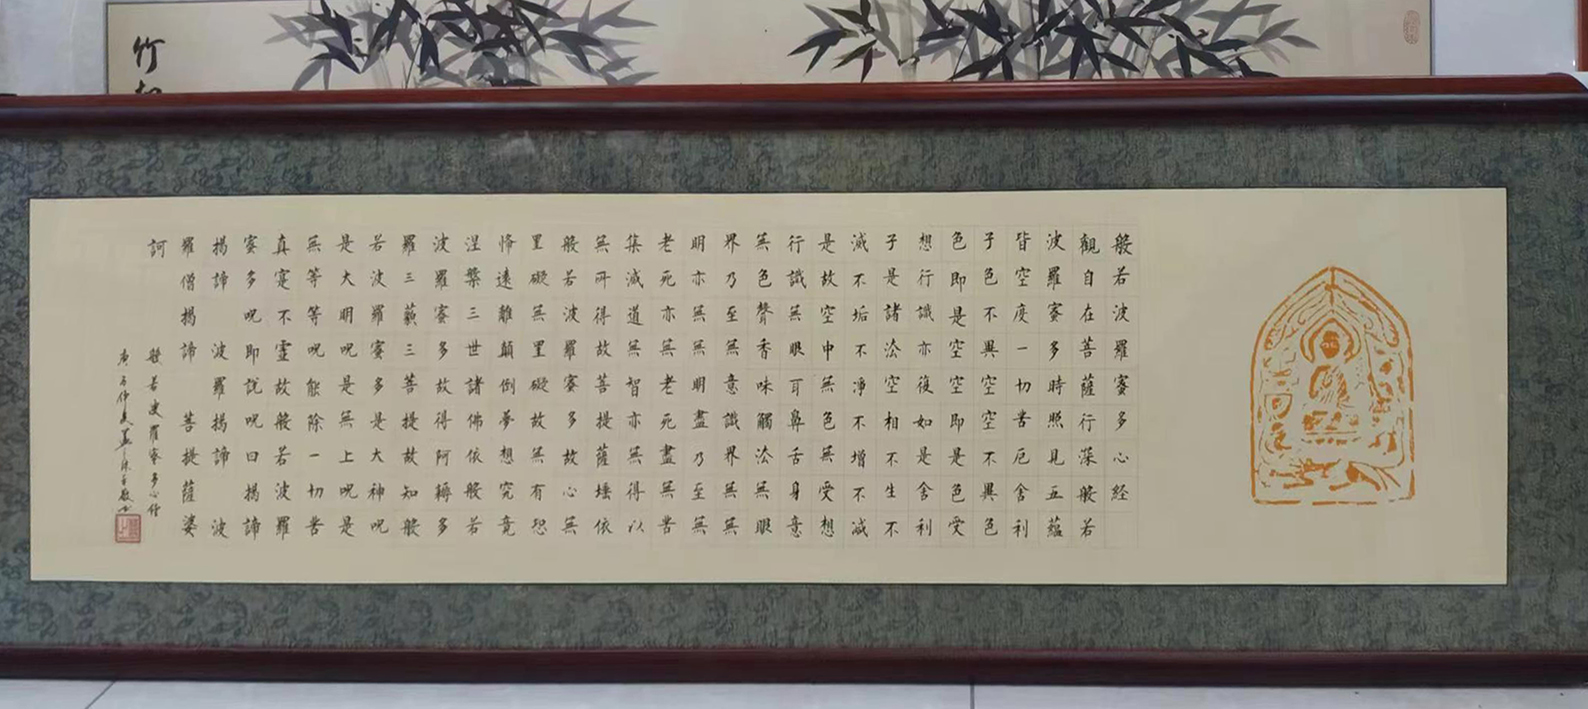 竹
般若波羅蜜多心経
觀自在菩薩行深般若
波羅蜜多時照見五蘊
皆空度一切苦厄舍利
子色不異空空不異色
色即是空空即是色受
想行識亦復如是舍利
子是諸法空相不生不
滅不垢不淨不增不減
是故空中無色無受想
行識無眼耳鼻舌身意
無色聲香味觸法無眼
界乃至無意識界無無
明亦無無明盡乃至無
老死亦無老死盡無苦
集滅道無智亦無得以
無所得故菩提薩埵依
般若波羅蜜多故心無
罣礙無罣礙故無有恐
怖遠離顛倒夢想究竟
涅槃三世諸佛依般若
波羅蜜多故得阿耨多
羅三藐三菩提故知般
若波羅蜜多是大神呪
是大明呪是無上呪是
無等等呪能除一切苦
真寔不虛故般若波羅
蜜多呪即説呪曰揭諦
揭諦 波羅揭諦 波
羅僧揭諦 菩提薩婆
訶
般若波羅蜜多心経